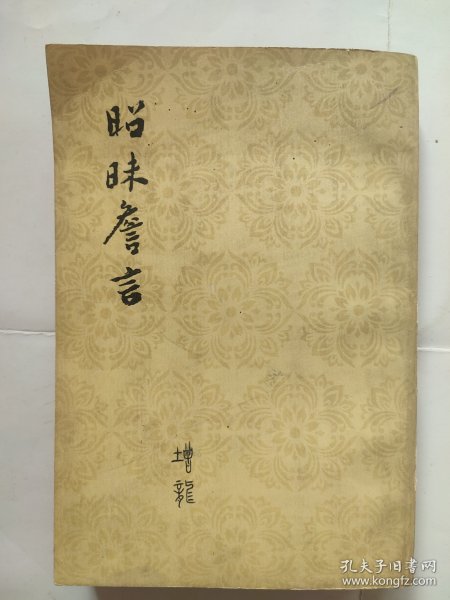 昭昧詹言
增龍
孔夫子旧书网
www.kongfz.com